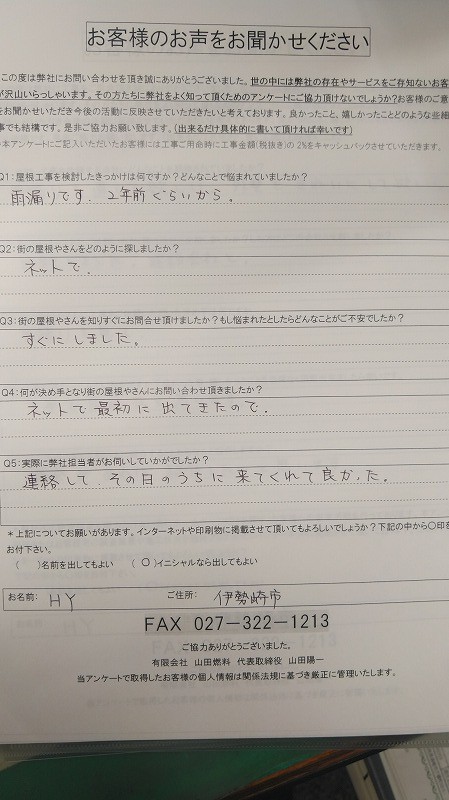 お客様のお声をお聞かせください
この度は弊社にお問い合わせを頂き誠にありがとうございました。世の中には弊社の存在やサービスをご存知ないお客
が沢山いらっしゃいます。その方たちに弊社をよく知って頂くためのアンケートにご協力頂けないでしょうか？お客様のご意
をお聞かせいただき今後の活動に反映させていただきたいと考えております。良かったこと、嬉しかったことどのような些細
事でも結構です。是非ご協力お願い致します。（出来るだけ具体的に書いて頂ければ幸いです）
本アンケートにご記入いただいたお客様には工事ご用命時に工事金額(税抜き)の2%をキャッシュバックさせていただきます。
Q1：屋根工事を検討したきっかけは何ですか？どんなことで悩まれていましたか？
雨漏りです。2年前ぐらいから。
Q2：街の屋根やさんをどのように探しましたか？
ネットで。
Q3：街の屋根やさんを知りすぐにお問合せ頂けましたか？もし悩まれたとしたらどんなことがご不安でしたか？
すぐにしました。
Q4：何が決め手となり街の屋根やさんにお問い合わせ頂きましたか？
ネットで最初に出てきたので。
Q5：実際に弊社担当者がお伺いしていかがでしたか？
連絡して、その日のうちに来てくれて良かった。
＊上記についてお願いがあります。インターネットや印刷物に掲載させて頂いてもよろしいでしょうか？下記の中から〇印を
お付下さい。
（　）名前を出してもよい　（〇）イニシャルなら出してもよい
お名前：　HY　ご住所：　伊勢崎市
FAX 027－322－1213
ご協力ありがとうございました。
有限会社　山田燃料　代表取締役　山田陽一
当アンケートで取得したお客様の個人情報は関係法規に基づき厳正に管理いたします。